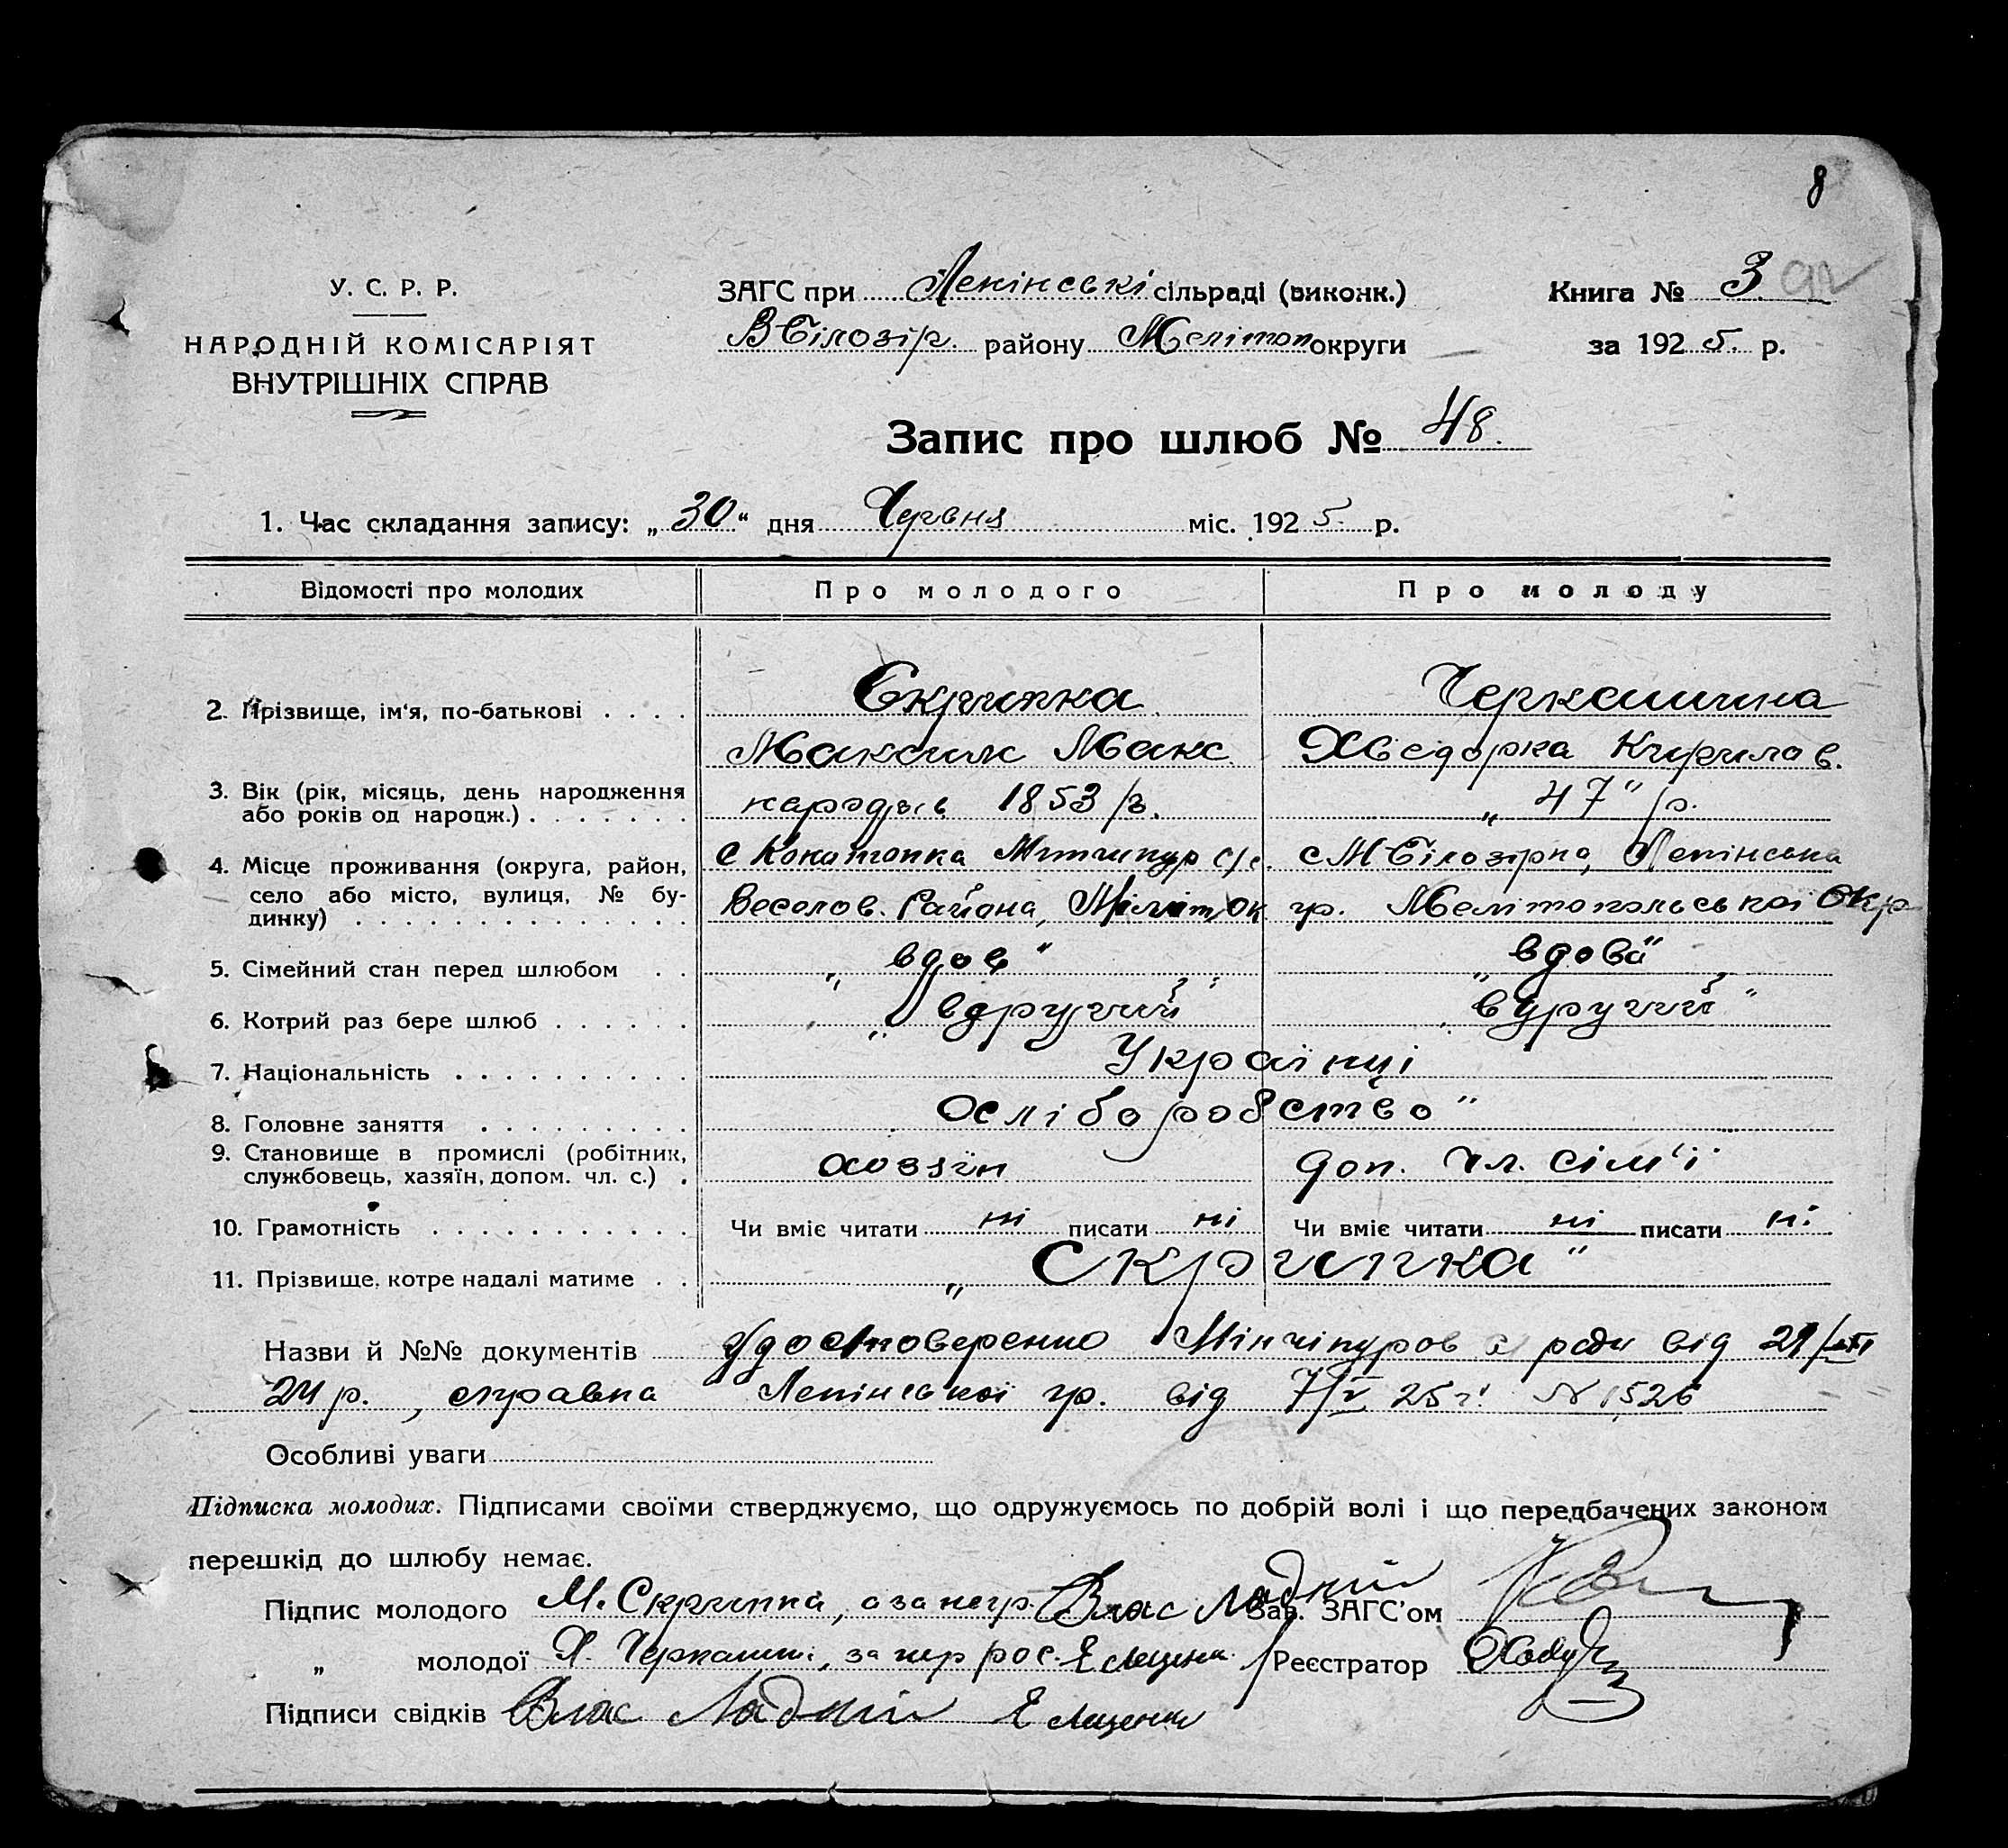 8
У. С. Р. Р.
НАРОДНІЙ КОМІСАРІЯТ
ВНУТРІШНІХ СПРАВ
ЗАГС при Ленінські сільраді (виконк.)
В Білозір. району Мелітоп округи
Книга № 3 92
за 1925 р.
Запис про шлюб № 48.
1. Час складання запису: „30" дня Червня міс. 1925 р.
Відомості про молодих Про молодого Про молоду
2. Прізвище, ім'я, по-батькові . . . . Скрипка Черкашина
Максим Макс. Хведорка Кирилов.
3. Вік (рік, місяць, день народження
або років од народж.) . . . . . . . народивсь 1853 р. „47" р.
4. Місце проживання (округа, район, с М Білозірка, Ленінська
село або місто, вулиця, № бу-
динку) . . . . . . . . . . . . . Веселов. Района, Меліт, Ок гр. Мелітопольської Окр
5. Сімейний стан перед шлюбом . . „вдов" „вдова"
6. Котрий раз бере шлюб . . . . . . „вдругий" „вдругий"
7. Національність . . . . . . . . . . Українці
8. Головне заняття . . . . . . . . . хліборобство"
9. Становище в промислі (робітник,
службовець, хазяїн, допом. чл. с.) . хозяїн доп. чл. сім'ї
10. Грамотність . . . . . . . . . . . Чи вміє читати ні писати ні Чи вміє читати ні писати ні
11. Прізвище, котре надалі матиме . . „Скрипка"
Назви й №№ документів ради від
24 р., справка Ленінської гр. від 7/V 25 г. № 1526
Особливі уваги
Підписка молодих. Підписами своїми стверджуємо, що одружуємось по добрій волі і що передбачених законом
перешкід до шлюбу немає.
Підпис молодого М. Скрипка, а за негр. Влас Ладний Зав. ЗАГС'ом
„ молодої Х. Черкаш., за Е Лищенк Реєстратор
Підписи свідків Влас Ладний Е Лищенк